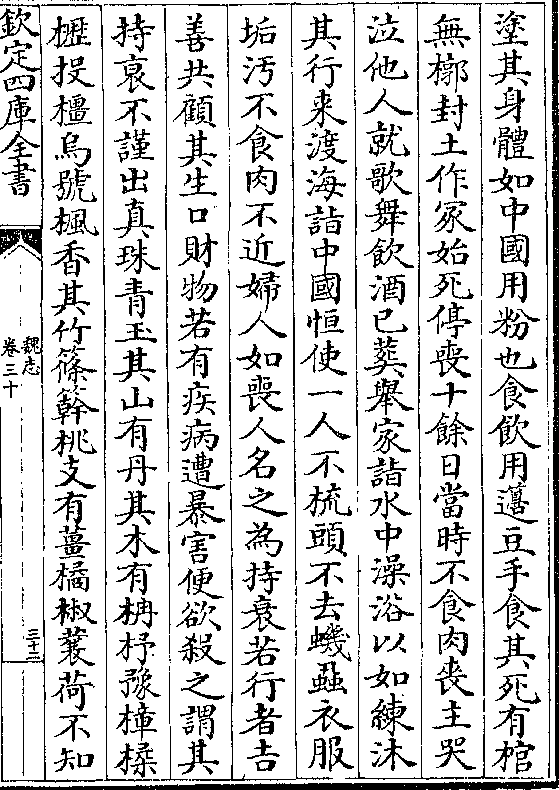 塗其身體如中國用粉也食飲用籩豆手食其死有棺
無槨封土作冢始死停喪十餘日當時不食肉喪主哭
泣他人就歌舞飲酒已葬舉家詣水中澡浴以如練沐
其行来渡海詣中國恒使一人不梳頭不去蟣蝨衣服
垢汚不食肉不近婦人如喪人名之為持衰若行者吉
善共顧其生口財物若有疾病遭暴害便欲殺之謂其
持衰不謹出真珠青玉其山有丹其木有柟杼豫樟楺
櫪投橿烏號楓香其竹篠簳桃支有薑橘椒蘘荷不知
欽定四庫全書
魏志
卷三十
三十二